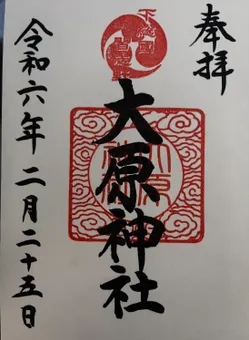 奉拝
大原神社
令和六年二月二十五日